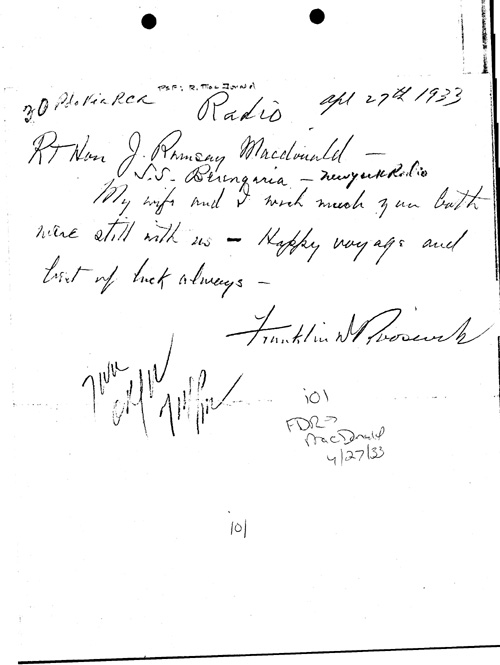 Radio
Apl 27th 1933
30 Pd via RCA
Rt Hon J. Ramsay Macdonald —
S.S. Berengaria — newyork Radio
My wife and I wish much you both
were still with us — Happy voyage and
best of luck always —
Franklin D Roosevelt
101
FDR→
MacDonald
4/27/33
101